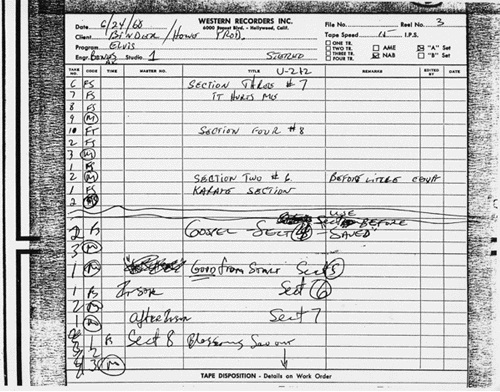 WESTERN RECORDERS INC.
6000 Sunset Blvd. - Hollywood, Calif.
Date 6/24/68
File No. Reel No. 3
Client BINDER / HOWE PROD.
Tape Speed I.P.S.
Program ELVIS
ONE TR.
TWO TR.
THREE TR.
FOUR TR.
AME
NAB
"A" Set
"B" Set
Engr. Studio 1
TAKE NO. CODE TIME MASTER NO. TITLE U-212 REMARKS EDITED BY DATE
6 FS SECTION THREE # 7
7 FS IT HURTS ME
8 FS
9 M
10 FT SECTION FOUR # 8
2 FS
3 M
1 FS
2 M SECTION TWO # 6 BEFORE LITTLE
1 FS KARATE SECTION
2
LINE
Sect BEFORE
2 GOSPEL - SECT 4 - "SAVED"
3 M
1 M GOOD from START Sect 5
1 FS Sect 6
2 M
1 M after Sect 7
1 Sect 8 Blessing
2
3 M
TAPE DISPOSITION - Details on Work Order